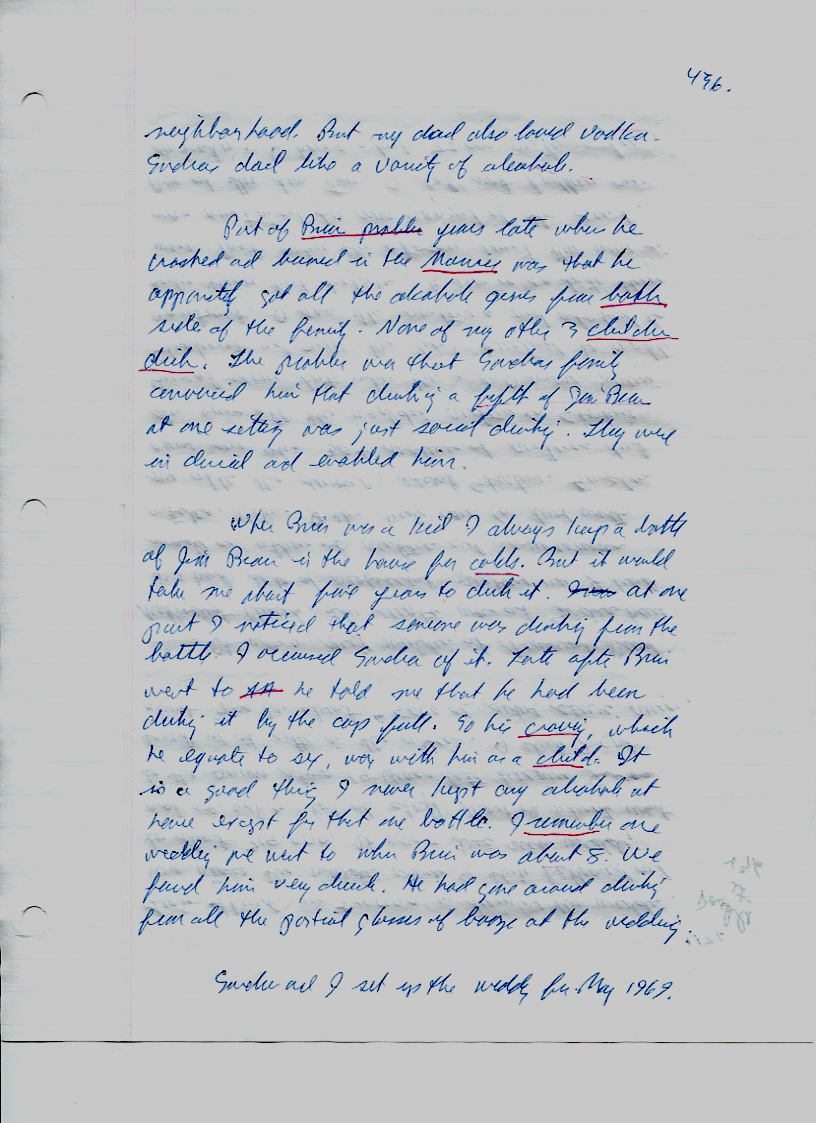 496.
neighborhood. But my dad also loved vodka.
Sandras dad like a variety of alcohols.
Part of Brin problem years late when he
crashed ad burned in the Marines was that he
apparently got all the alcohole genes from both
side of the family. None of my other 3 children
drink. The problem was that Sandras family
convinced him that drinking a fifth of Jim Beam
at one setting was just social drinking. They were
in denial ad enabled him.
When Brin was a kid I always keep a bottle
of Jim Beam in the house for colds. But it would
take me about five years to drink it. at one
point I noticed that someone was drinking from the
bottle. I accused Sandra of it. Late after Brin
went to he told me that he had been
drinking it by the cap full. So his craving, which
he equate to sex, was with him as a child. It
is a good thing I never kept any alcohols at
home except for that one bottle. I remember one
wedding we went to when Brin was about 8. We
found him very drunk. He had gone around drinking
from all the partial glasses of booze at the wedding.
Sandra ad I set up the wedding for May 1969.